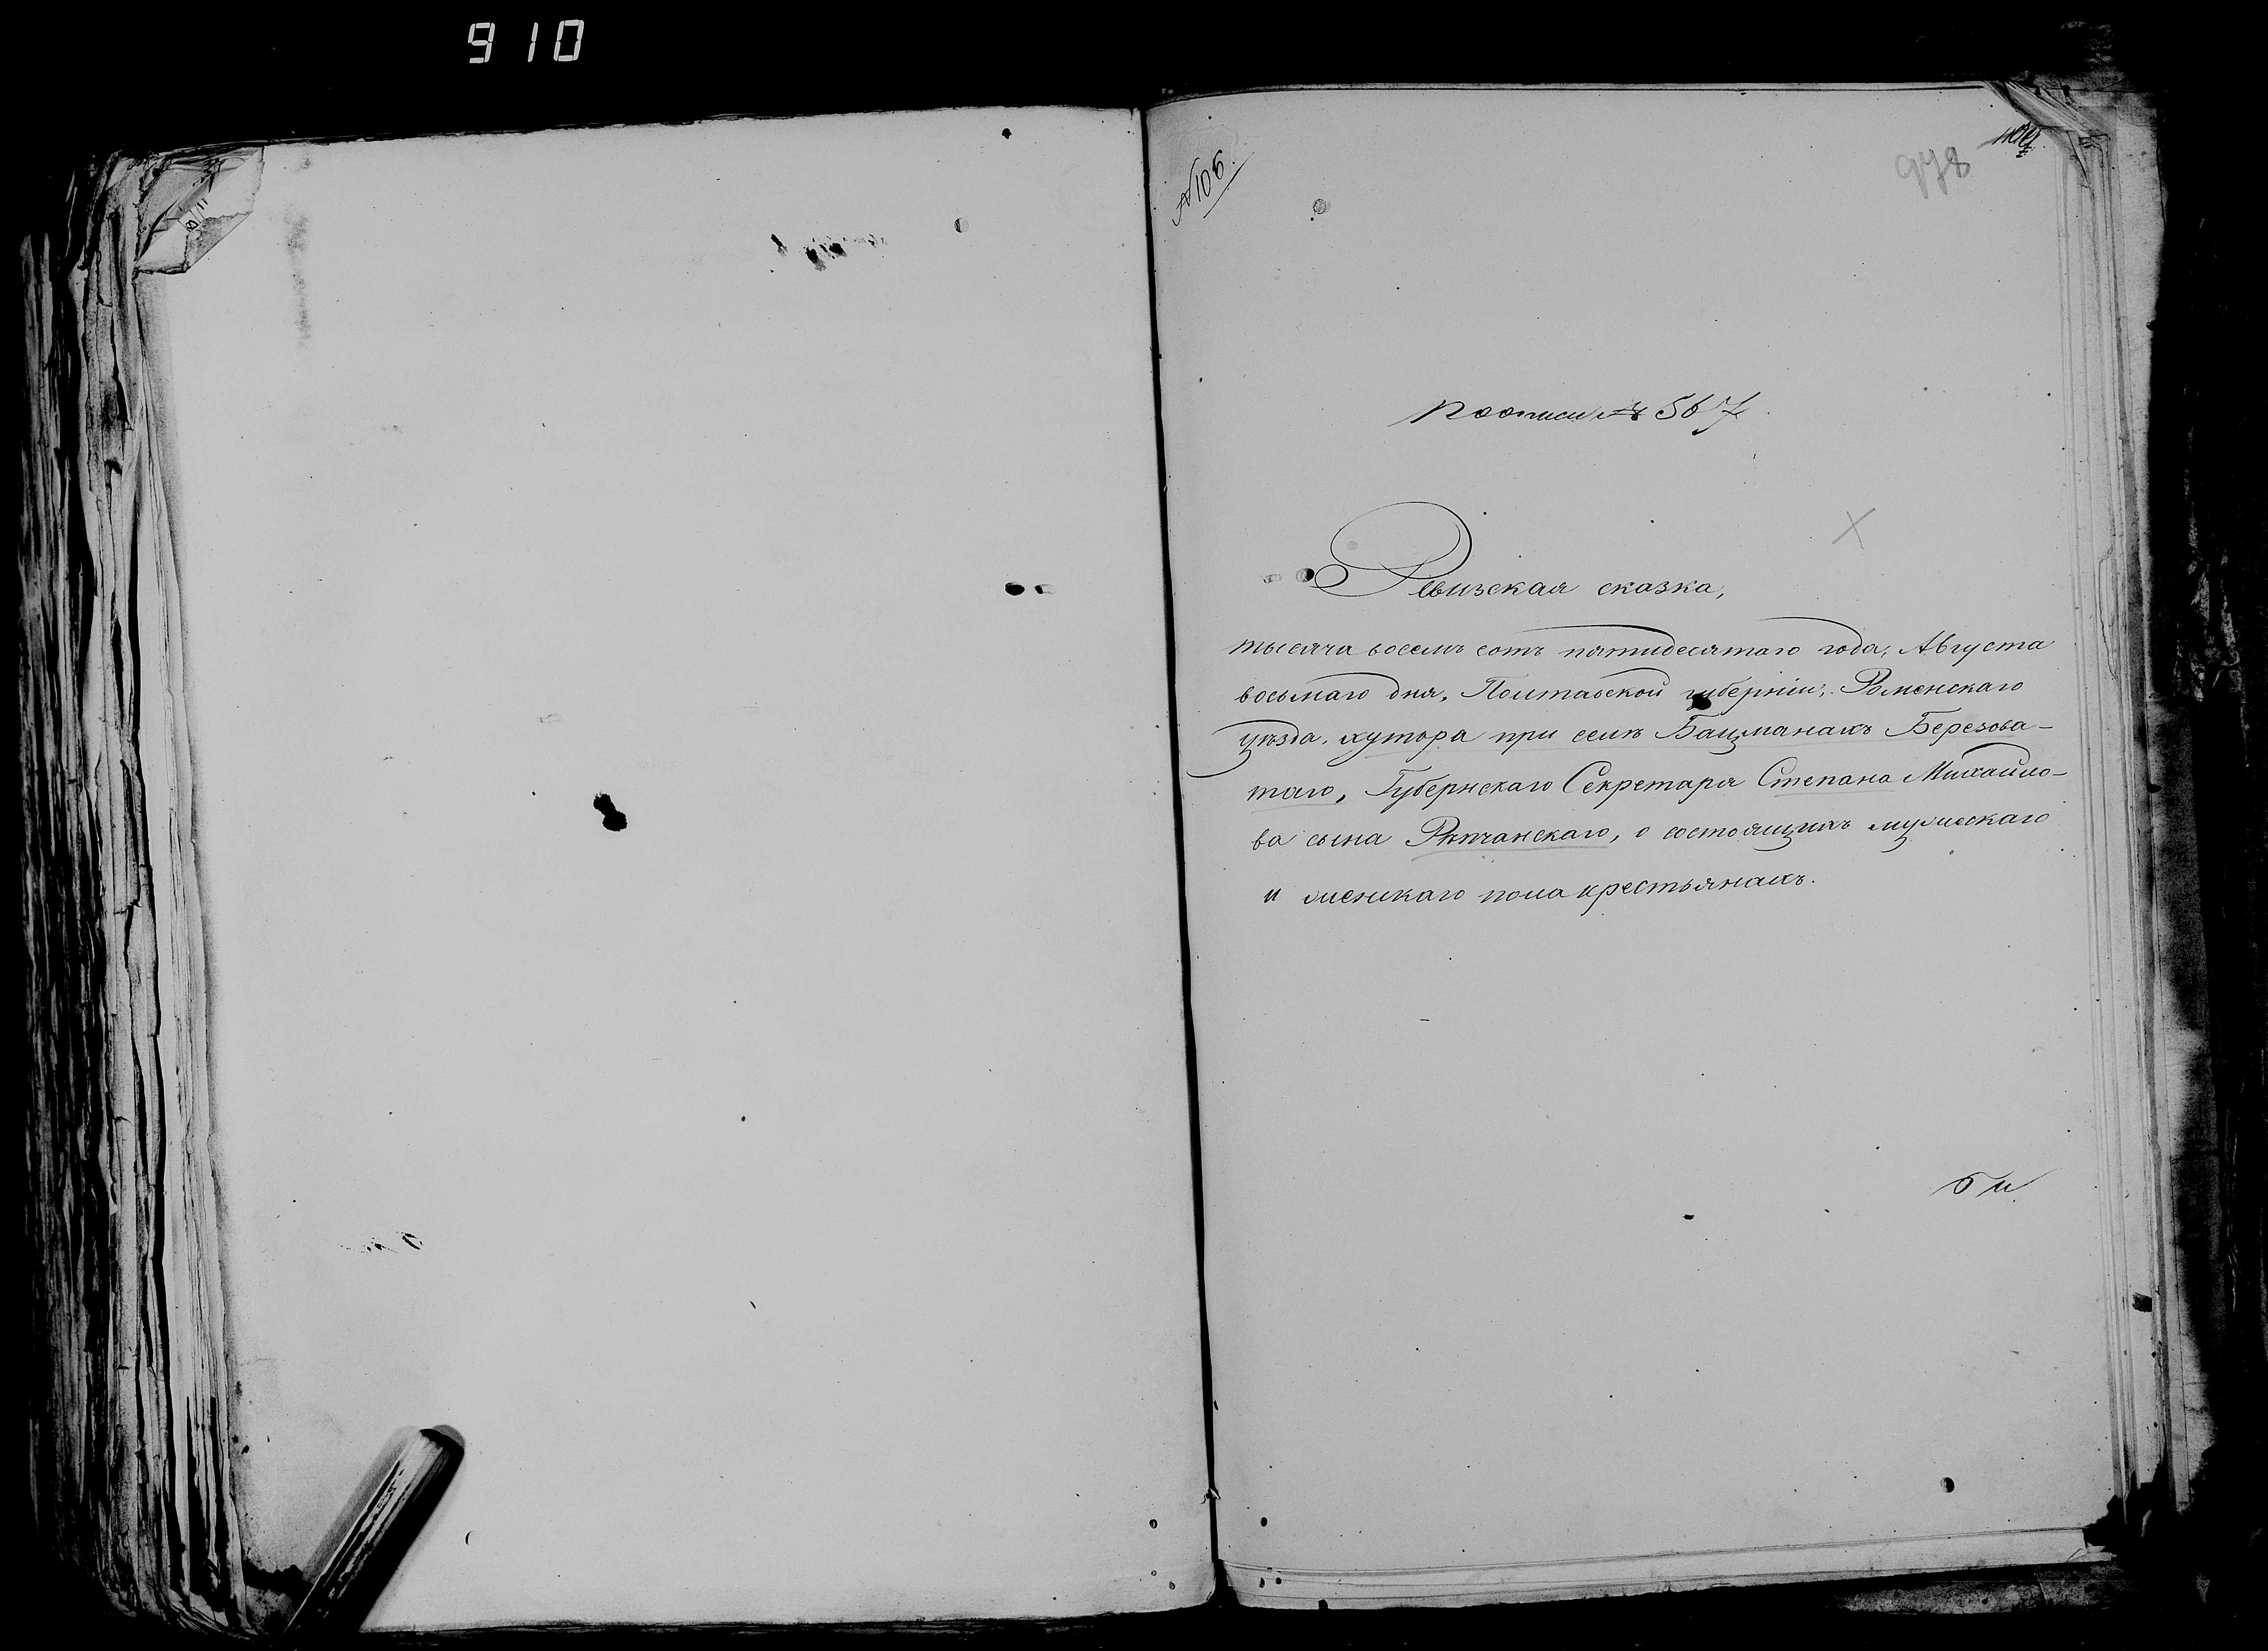 910
№ 106.
978
По описи № 567
Ревизская сказка,
тысяча восемь сотъ пятидесятаго года, Августа
восьмаго дня, Полтавской губерніи, Роменскаго
уѣзда, хутора при селѣ Бацманахъ Березова-
таго, Губернскаго Секретаря Степана Михайло-
ва сына Рѣпчанскаго, о состоящихъ мужескаго
и женскаго пола крестьянахъ.